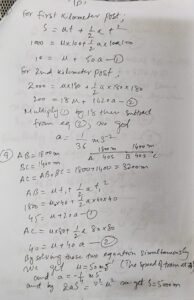 for first kilometer post,
S = ut + 1/2 a t²
1000 = ux100 + 1/2 ax100x100
10 = u + 50a — ①
For 2nd kilometer post,
2000 = ux180 + 1/2 ax180x180
200 = 18u + 1620a — ②
Multiply ① by 18 then subtract
from eq ②; we get
a = 1/36 ms⁻²
④ AB = 1800m
BC = 1400m
1800m 1400m
A 40s B 40s C
AC = AB + BC = 1800 + 1400 = 3200m
AB = ut + 1/2 a t²
1800 = ux40 + 1/2 ax40x40
45 = u + 20a — ①
AC = ux80 + 1/2 a 80x80
40 = u + 40a — ②
By solving these two equation simultaneously
we get u = 50 m/s (The speed of train at A)
and a = -1/4 m/s²
and by 2aS = v² - u² we get S = 5000m